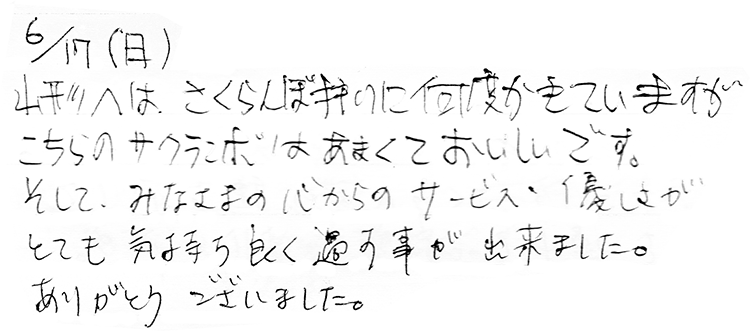 6/17(日)
山形へは、さくらんぼ狩りに何度かきていますが
こちらのサクランボはあまくておいしいです。
そして、みなさまの心からのサービス・優しさが
とても気持ち良く過す事が出来ました。
ありがとうございました。